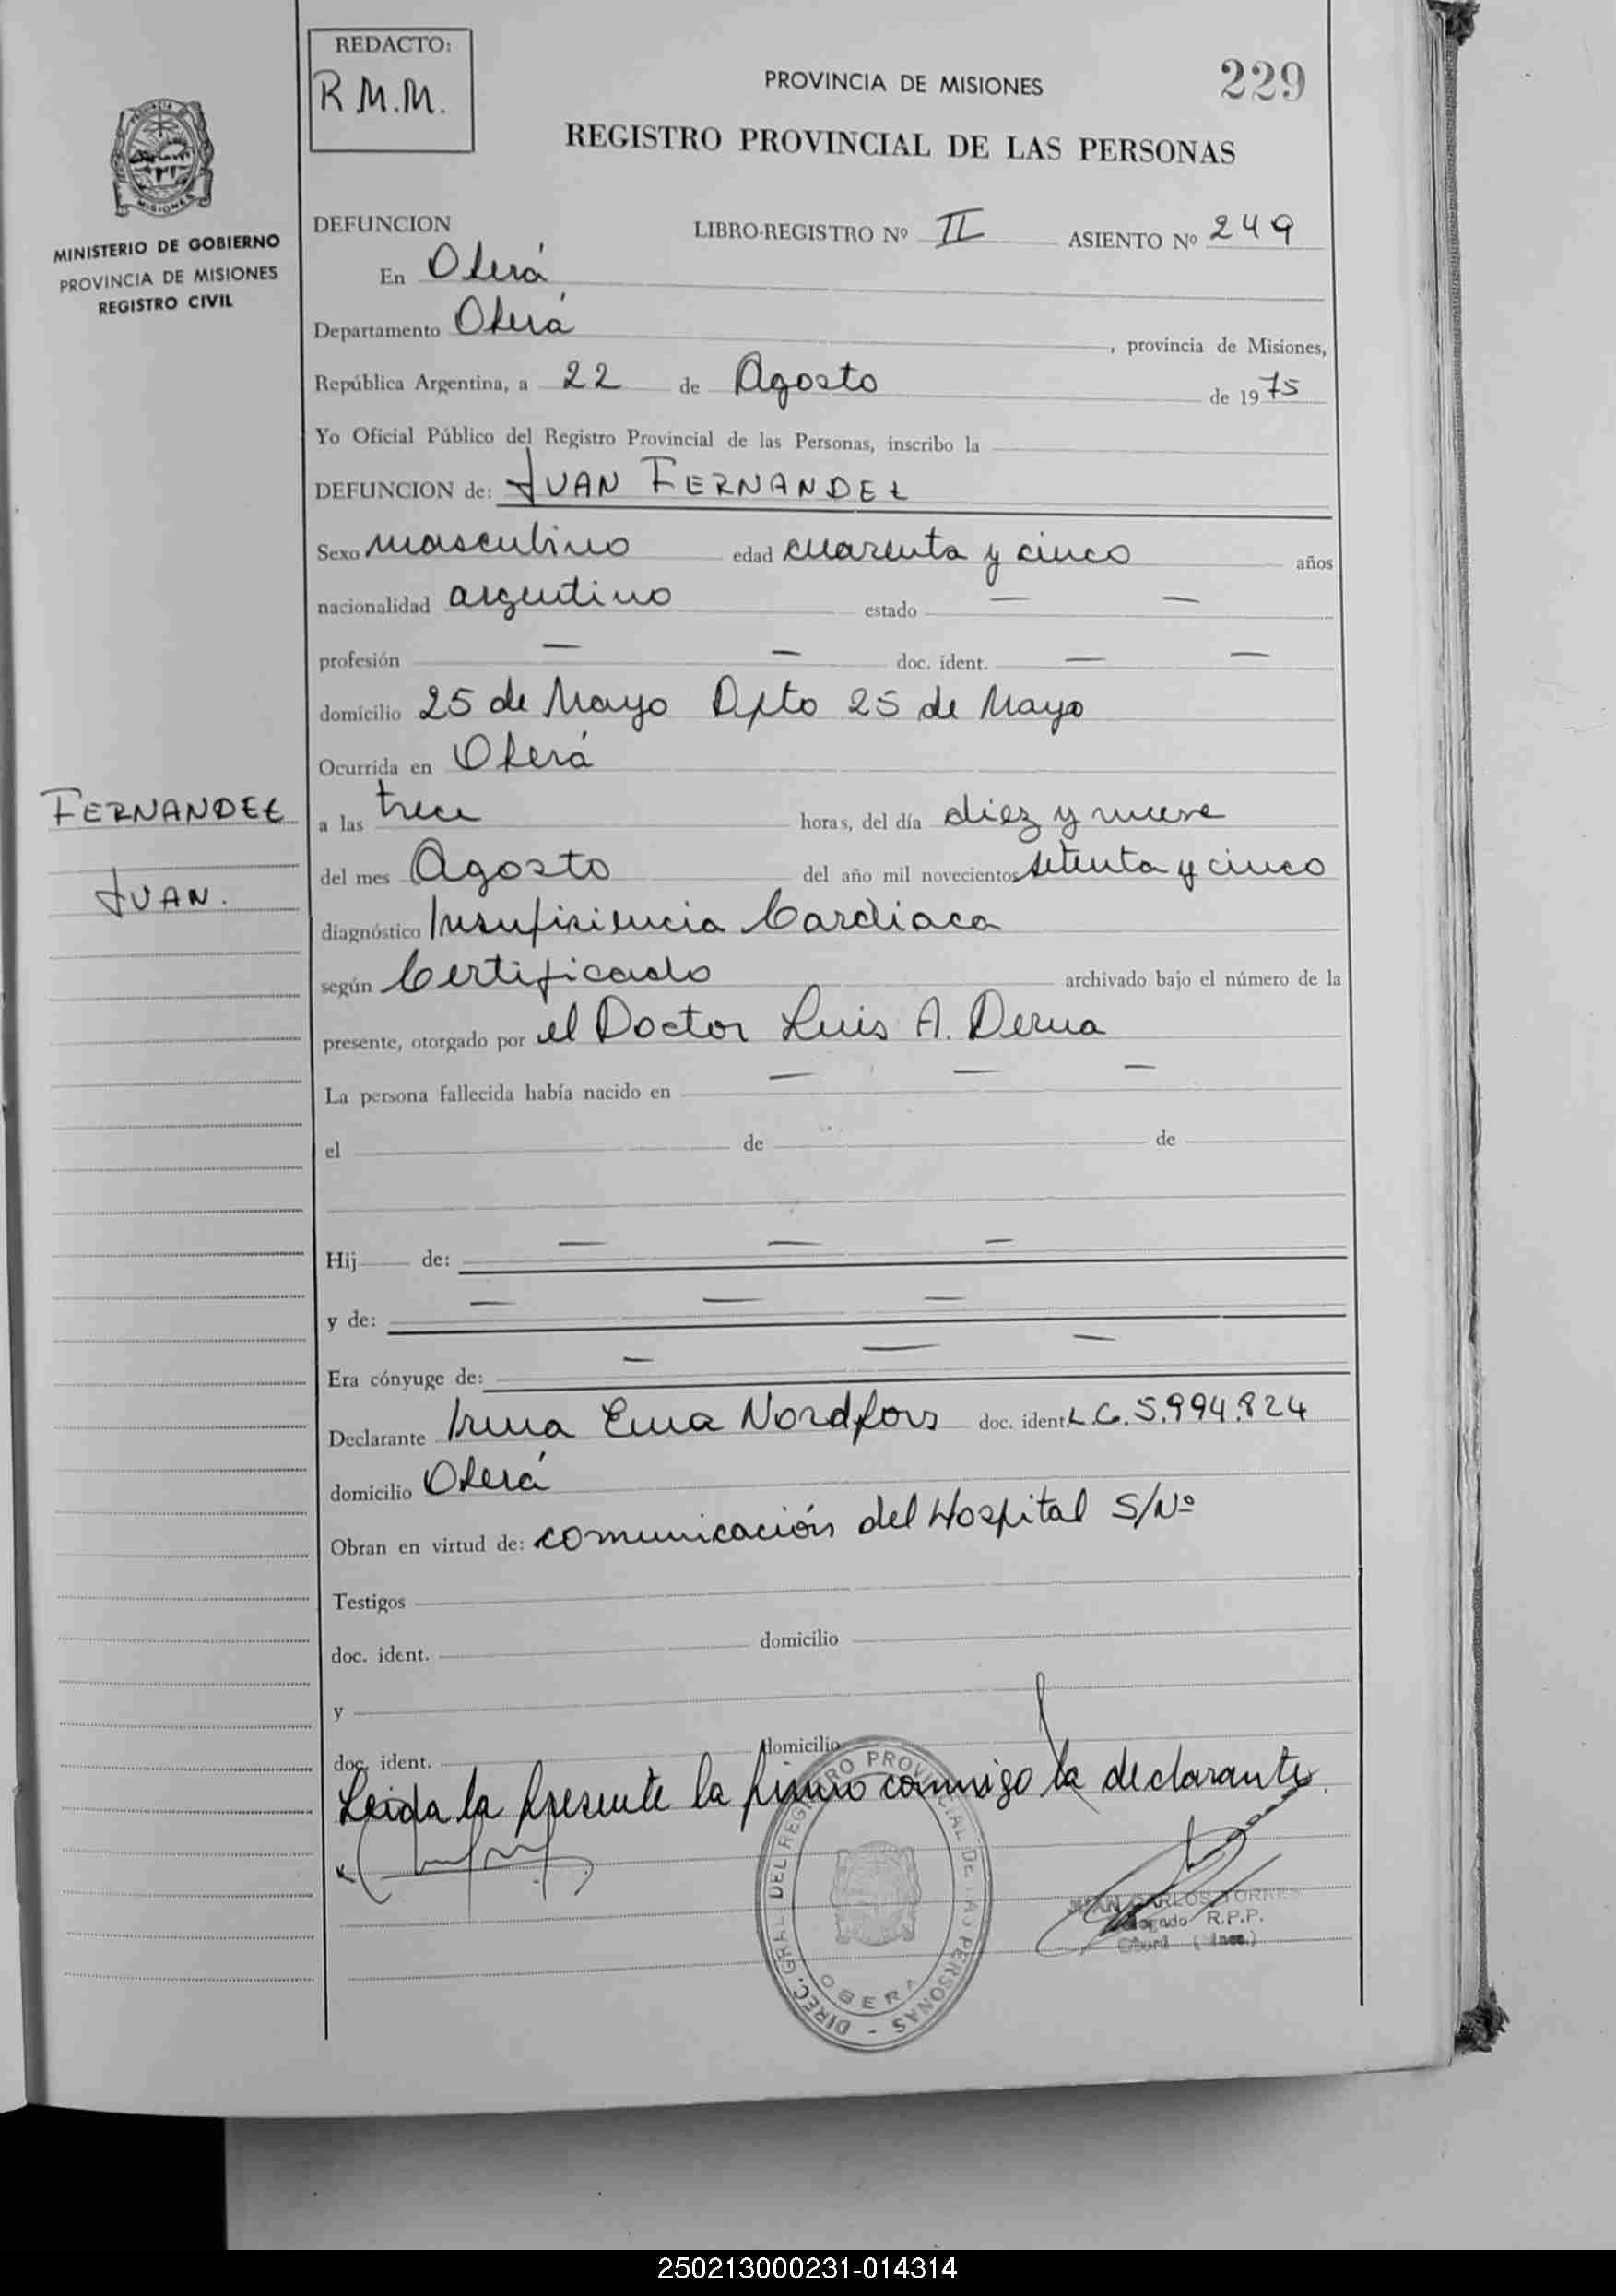 REDACTO:
R M.M.
PROVINCIA DE MISIONES
229
REGISTRO PROVINCIAL DE LAS PERSONAS
MINISTERIO DE GOBIERNO
PROVINCIA DE MISIONES
REGISTRO CIVIL
DEFUNCION LIBRO-REGISTRO Nº II ASIENTO Nº 249
En Oberá
Departamento Oberá, provincia de Misiones,
República Argentina, a 22 de Agosto de 1975
Yo Oficial Público del Registro Provincial de las Personas, inscribo la
DEFUNCION de: JUAN FERNANDEZ
Sexo masculino edad cuarenta y cinco años
nacionalidad argentino estado — —
profesión — — doc. ident. — —
domicilio 25 de Mayo Dpto 25 de Mayo
Ocurrida en Oberá
FERNANDEZ
JUAN.
a las trece horas, del día diez y nueve
del mes Agosto del año mil novecientos setenta y cinco
diagnóstico Insuficiencia Cardiaca
según Certificado archivado bajo el número de la
presente, otorgado por el Doctor Luis A. Derna
La persona fallecida había nacido en — — —
el de de
Hij de: — — —
y de: — — —
Era cónyuge de: — — —
Declarante Irma Ema Nordfors doc. ident. L.C. 5.994.824
domicilio Oberá
Obran en virtud de: comunicación del Hospital S/Nº
Testigos
doc. ident. domicilio
y
doc. ident. domicilio
Leida la presente la firma conmigo la declarante.
DIREC. GRAL. DEL REGISTRO PROVINCIAL DE LAS PERSONAS - OBERA
JUAN CARLOS TORRES
R.P.P.
Oberá (Mnes.)
250213000231-014314